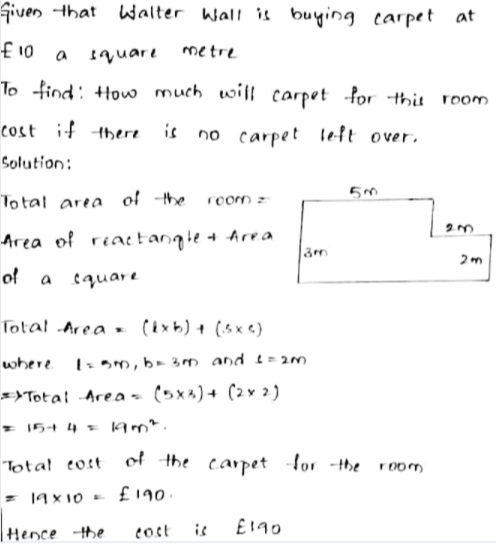 Given that Walter Wall is buying carpet at
£10 a square metre
To find: How much will carpet for this room
cost if there is no carpet left over.
Solution:
Total area of the room =
Area of reactangle + Area
of a square
5m
2m
3m
2m
Total Area = (l×b) + (s×s)
where l = 5m, b = 3m and s = 2m
=> Total Area = (5×3) + (2×2)
= 15 + 4 = 19m².
Total cost of the carpet for the room
= 19×10 = £190.
Hence the cost is £190